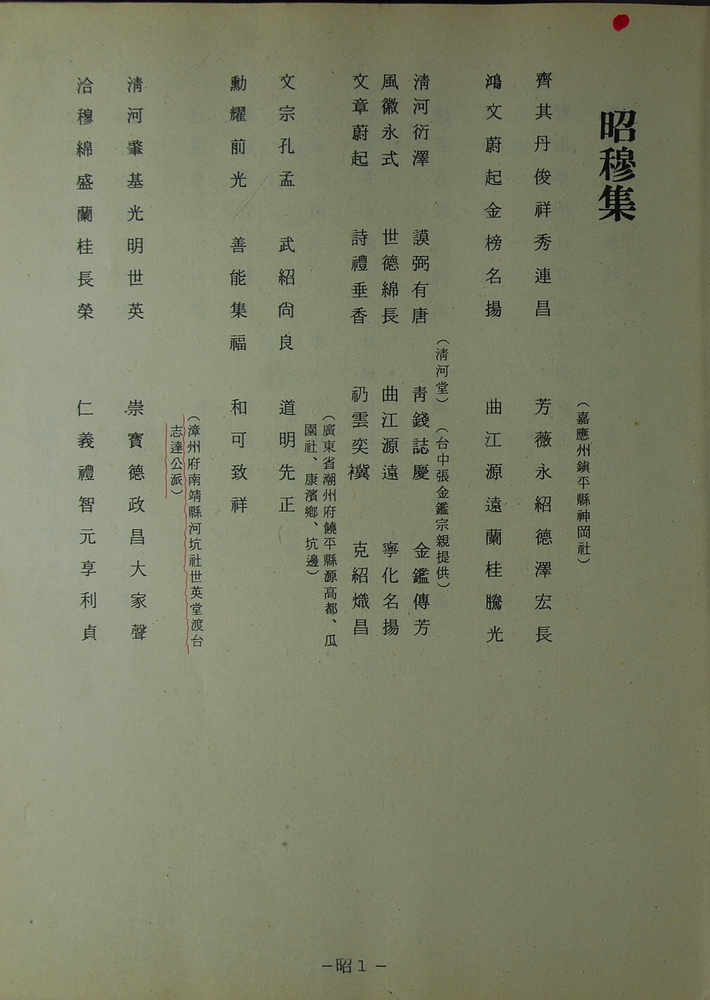 昭穆集
(嘉應州鎮平縣神岡社)
齊其丹俊祥秀連昌 芳薇永紹德澤宏長
鴻文蔚起金榜名揚 曲江源遠蘭桂騰光
(清河堂)(台中張金鑑宗親提供)
清河衍澤 謨弼有唐 青錢誌慶 金鑑傳芳
風徽永式 世德綿長 曲江源遠 寧化名揚
文章蔚起 詩禮垂香 礽雲奕 克紹熾昌
(廣東省潮州府饒平縣源高都、瓜
園社、康濱鄉、坑邊)
文宗孔孟 武紹尚良 道明先正
勳耀前光 善能集福 和可致祥
(漳州府南靖縣河坑社世英堂渡台
志達公派)
清河肇基光明世英 崇寶德政昌大家聲
洽穆綿盛蘭桂長榮 仁義禮智元享利貞
–昭1–